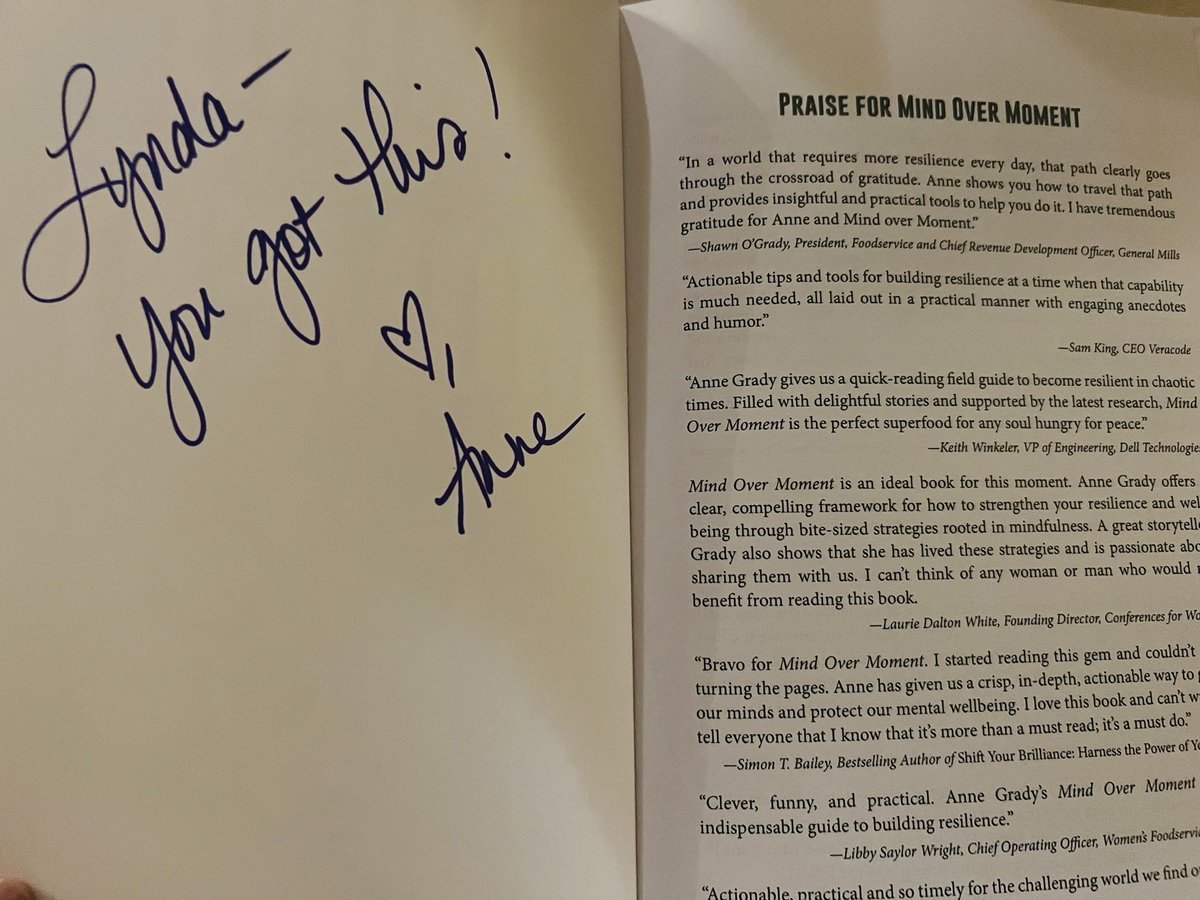 Lynda —
you got this!
♡,
Anne
PRAISE FOR MIND OVER MOMENT
“In a world that requires more resilience every day, that path clearly goes
through the crossroad of gratitude. Anne shows you how to travel that path
and provides insightful and practical tools to help you do it. I have tremendous
gratitude for Anne and Mind over Moment.”
—Shawn O’Grady, President, Foodservice and Chief Revenue Development Officer, General Mills
“Actionable tips and tools for building resilience at a time when that capability
is much needed, all laid out in a practical manner with engaging anecdotes
and humor.”
—Sam King, CEO Veracode
“Anne Grady gives us a quick-reading field guide to become resilient in chaotic
times. Filled with delightful stories and supported by the latest research, Mind
Over Moment is the perfect superfood for any soul hungry for peace.”
—Keith Winkeler, VP of Engineering, Dell Technologie
Mind Over Moment is an ideal book for this moment. Anne Grady offers
clear, compelling framework for how to strengthen your resilience and wel
being through bite-sized strategies rooted in mindfulness. A great storytelle
Grady also shows that she has lived these strategies and is passionate abo
sharing them with us. I can’t think of any woman or man who would
benefit from reading this book.
—Laurie Dalton White, Founding Director, Conferences for Wo
“Bravo for Mind Over Moment. I started reading this gem and couldn’t
turning the pages. Anne has given us a crisp, in-depth, actionable way to
our minds and protect our mental wellbeing. I love this book and can’t w
tell everyone that I know that it’s more than a must read; it’s a must do.”
—Simon T. Bailey, Bestselling Author of Shift Your Brilliance: Harness the Power of Yo
“Clever, funny, and practical. Anne Grady’s Mind Over Moment
indispensable guide to building resilience.”
—Libby Saylor Wright, Chief Operating Officer, Women’s Foodservic
“Actionable, practical and so timely for the challenging world we find o